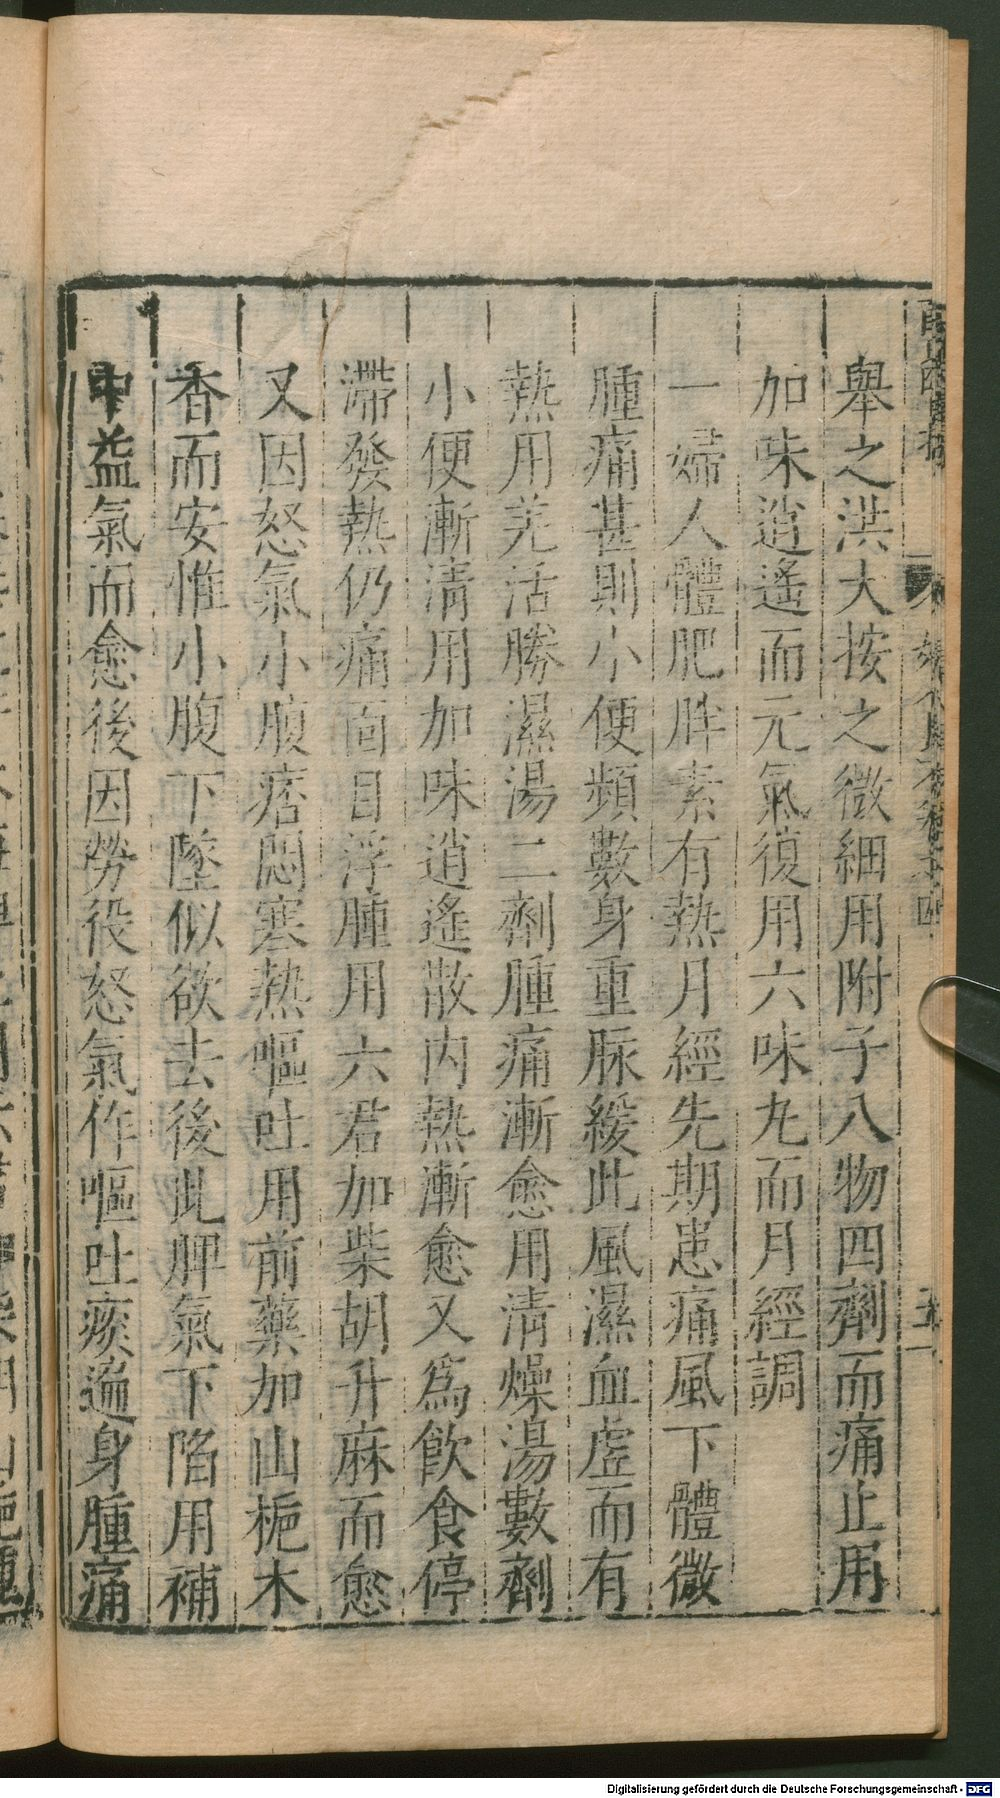 舉之洪大按之微細用附子八物四劑而痛止用
加味逍遙而元氣復用六味丸而月經調
一婦人體肥胖素有熱月經先期患痛風下體微
腫痛甚則小便頻數身重脉緩此風濕血虛而有
熱用羌活勝濕湯二劑腫痛漸愈用清燥湯數劑
小便漸清用加味逍遙散內熱漸愈又爲飲食停
滯發熱仍痛面目浮腫用六君加柴胡升麻而愈
又因怒氣小腹痞悶寒熱嘔吐用前藥加山梔木
香而安惟小腹下墜似欲去後此脾氣下陷用補
中益氣而愈後因勞役怒氣作嘔吐痰遍身腫痛
Digitalisierung gefördert durch die Deutsche Forschungsgemeinschaft - DFG